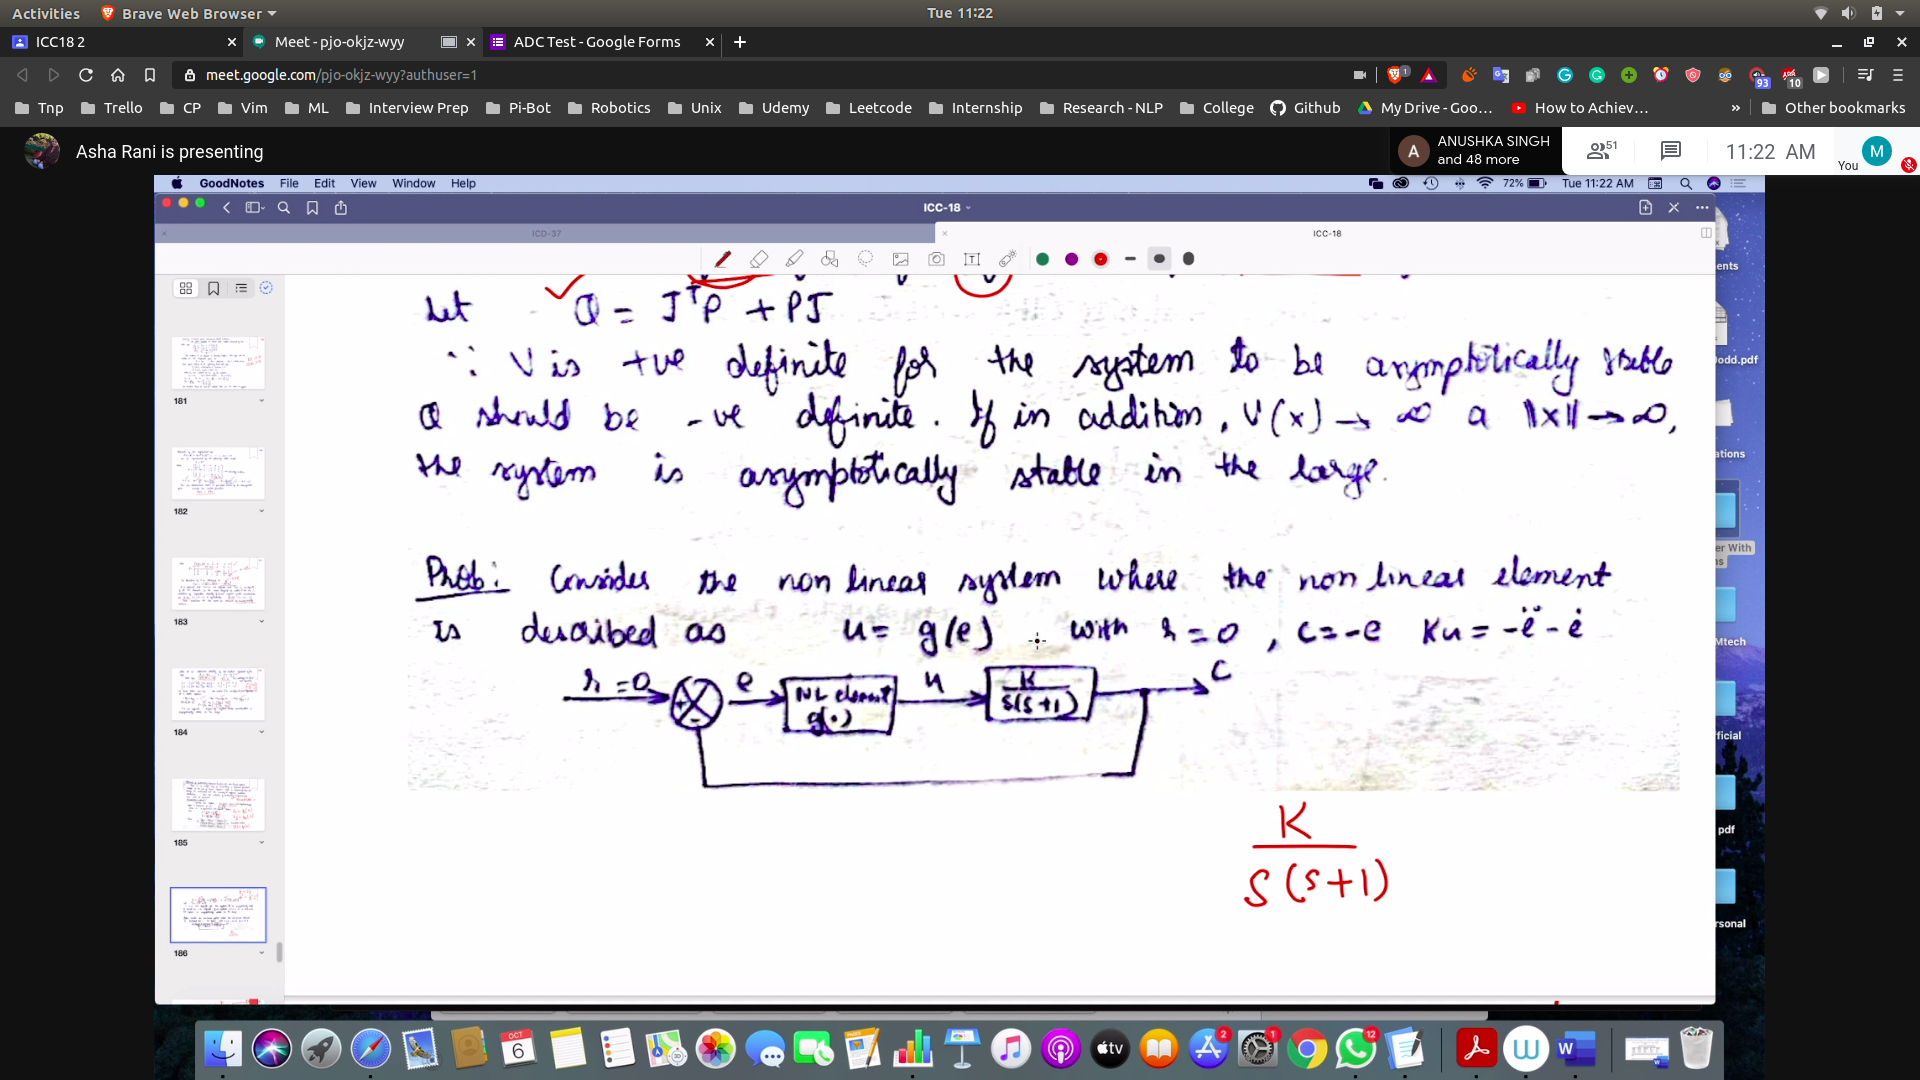 Activities Brave Web Browser Tue 11:22
ICC18 2 Meet - pjo-okjz-wyy ADC Test - Google Forms
meet.google.com/pjo-okjz-wyy?authuser=1 1 93 10
Tnp Trello CP Vim ML Interview Prep Pi-Bot Robotics Unix Udemy Leetcode Internship Research - NLP College Github My Drive - Goo... How to Achiev... » Other bookmarks
Asha Rani is presenting
A ANUSHKA SINGH and 48 more 51 11:22 AM You M
GoodNotes File Edit View Window Help 72% Tue 11:22 AM
ICC-18
ICD-37 ICC-18
Let Q = JᵀP + PJ
∵ V is +ve definite for the system to be asymptotically stable
Q should be -ve definite. If in addition, V(x) → ∞ a ‖x‖ → ∞,
the system is asymptotically stable in the large.
Prob: Consider the non linear system where the non linear element
is described as u = g(e) with r = 0, c = -e Ku = -ë - ė
r = 0 e NL element g(.) u K/s(s+1) c
+
-
K
s(s+1)
181
182
183
184
185
186
ents
odd.pdf
ations
er With
ns
Mtech
ficial
pdf
rsonal
OCT 6 tv 2 1 12